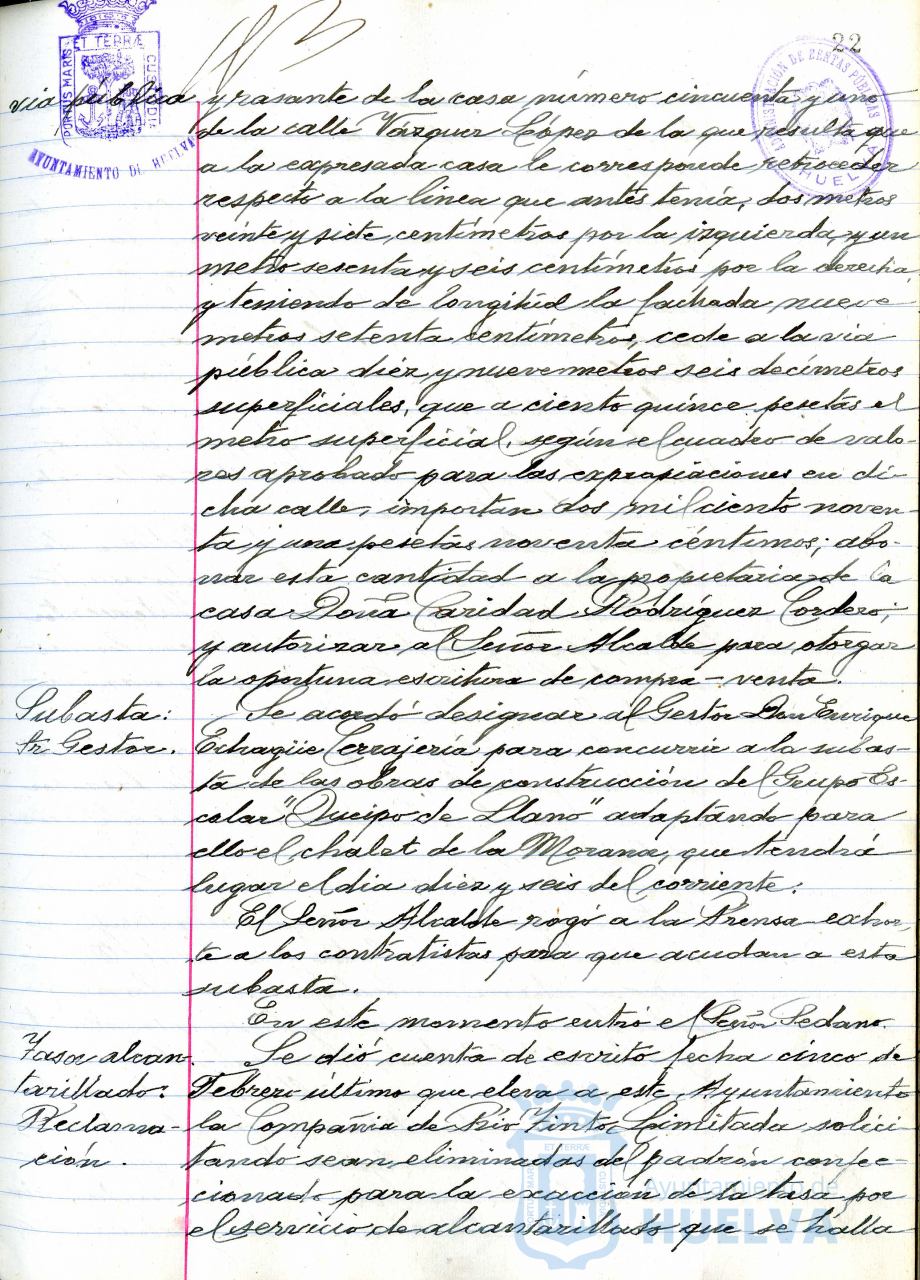 22
PORTUS MARIS ET TERRÆ CUSTODIA
AYUNTAMIENTO DE HUELVA
ADMINISTRACIÓN DE RENTAS PÚBLICAS
HUELVA
via pública y rasante de la casa número cincuenta y uno
de la calle Vázquez López de la que resulta que
a la expresada casa le corresponde retroceder
respecto a la linea que antes tenía, dos metros
veinte y siete centímetros por la izquierda, y un
metro sesenta y seis centímetros por la derecha
y teniendo de longitud la fachada nueve
metros setenta centímetros, cede a la via
pública diez y nueve metros seis decímetros
superficiales, que a ciento quince pesetas el
metro superficial, según el cuadro de valo-
res aprobado para las expropiaciones en di-
cha calle, importan dos mil ciento noven-
ta y una pesetas noventa céntimos; abo-
nar esta cantidad a la propietaria de la
casa Doña Caridad Rodríguez Cordero;
y autorizar al Señor Alcalde para otorgar
la oportuna escritura de compra-venta.
Subasta:
Sr Gestor.
Se acordó designar al Gestor Don Enrique
Echagüe Cerrajería para concurrir a la subas-
ta de las obras de construcción del Grupo Es-
colar "Queipo de Llano" adaptando para
ello el chalet de la Morana, que tendrá
lugar el dia diez y seis del corriente.
El Señor Alcalde rogó a la Prensa exhor-
te a los contratistas para que acudan a esta
subasta.
En este momento entró el Señor Sedano.
Tasa alcan-
tarillado:
Reclama-
ción.
Se dió cuenta de escrito fecha cinco de
Febrero último que eleva a este Ayuntamiento
la Compañia de Rio Tinto Limitada solici-
tando sean eliminadas del padrón confec-
cionado para la exacción de la tasa por
el servicio de alcantarillado que se halla
ET TERRÆ
Ayuntamiento de
HUELVA